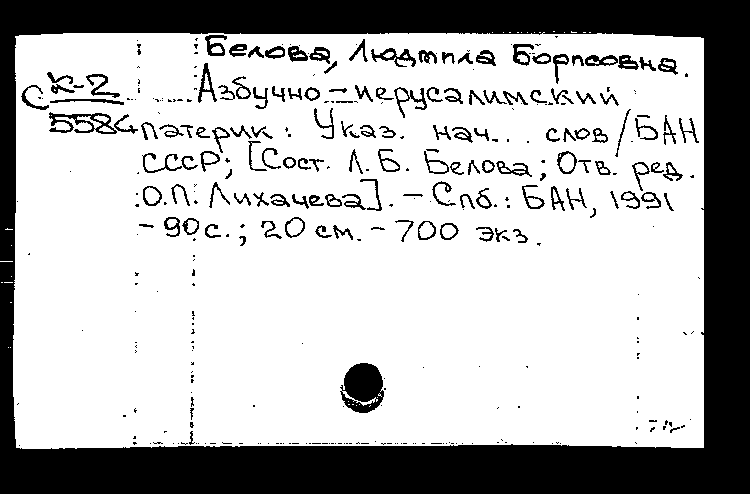 Белова, Людмила Борисовна.
С К-2
5584
Азбучно-иерусалимский
патерик: Указ. нач... слов/БАН
СССР; [Сост. Л. Б. Белова; Отв. ред.
О.П. Лихачева]. - Спб.: БАН, 1991
- 90 с.; 20 см. - 700 экз.